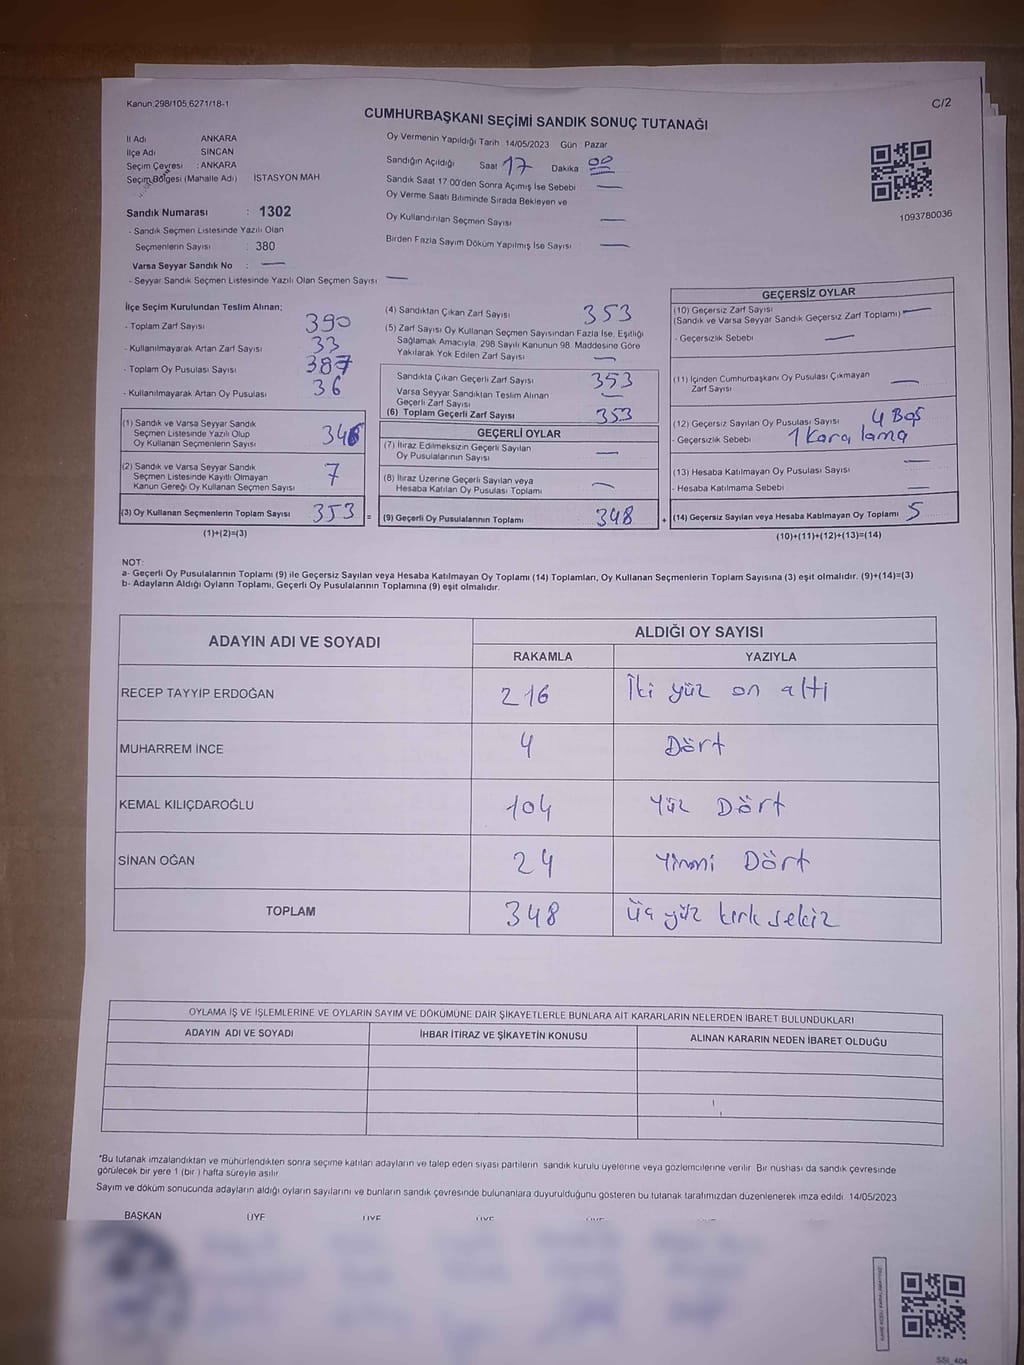 Kanun:298/105,6271/18-1
C/2
CUMHURBAŞKANI SEÇİMİ SANDIK SONUÇ TUTANAĞI
İl Adı ANKARA
İlçe Adı SİNCAN
Seçim Çevresi : ANKARA
Seçim Bölgesi (Mahalle Adı) İSTASYON MAH
Sandık Numarası : 1302
- Sandık Seçmen Listesinde Yazılı Olan
Seçmenlerin Sayısı : 380
Varsa Seyyar Sandık No : —
- Seyyar Sandık Seçmen Listesinde Yazılı Olan Seçmen Sayısı —
Oy Vermenin Yapıldığı Tarih 14/05/2023 Gün Pazar
Sandığın Açıldığı Saat 17 Dakika 00
Sandık Saat 17:00'den Sonra Açımış İse Sebebi —
Oy Verme Saati Bitiminde Sırada Bekleyen ve
Oy Kullandırılan Seçmen Sayısı —
Birden Fazla Sayım Döküm Yapılmış İse Sayısı —
1093780036
İlçe Seçim Kurulundan Teslim Alınan;
- Toplam Zarf Sayısı 390
- Kullanılmayarak Artan Zarf Sayısı 33
- Toplam Oy Pusulası Sayısı 387
- Kullanılmayarak Artan Oy Pusulası 36
(1) Sandık ve Varsa Seyyar Sandık
Seçmen Listesinde Yazılı Olup
Oy Kullanan Seçmenlerin Sayısı 346
(2) Sandık ve Varsa Seyyar Sandık
Seçmen Listesinde Kayıtlı Olmayan
Kanun Gereği Oy Kullanan Seçmen Sayısı 7
(3) Oy Kullanan Seçmenlerin Toplam Sayısı 353 =
(1)+(2)=(3)
(4) Sandıktan Çıkan Zarf Sayısı 353
(5) Zarf Sayısı Oy Kullanan Seçmen Sayısından Fazla İse, Eşitliği
Sağlamak Amacıyla, 298 Sayılı Kanunun 98. Maddesine Göre
Yakılarak Yok Edilen Zarf Sayısı —
Sandıkta Çıkan Geçerli Zarf Sayısı 353
Varsa Seyyar Sandıktan Teslim Alınan
Geçerli Zarf Sayısı —
(6) Toplam Geçerli Zarf Sayısı 353
GEÇERLİ OYLAR
(7) İtiraz Edilmeksizin Geçerli Sayılan
Oy Pusulalarının Sayısı —
(8) İtiraz Üzerine Geçerli Sayılan veya
Hesaba Katılan Oy Pusulası Toplamı —
(9) Geçerli Oy Pusulalarının Toplamı 348 +
GEÇERSİZ OYLAR
(10) Geçersiz Zarf Sayısı
(Sandık ve Varsa Seyyar Sandık Geçersiz Zarf Toplamı) —
- Geçersizlik Sebebi —
(11) İçinden Cumhurbaşkanı Oy Pusulası Çıkmayan
Zarf Sayısı —
(12) Geçersiz Sayılan Oy Pusulası Sayısı 4 Boş
- Geçersizlik Sebebi 1 Karalama
(13) Hesaba Katılmayan Oy Pusulası Sayısı —
- Hesaba Katılmama Sebebi —
(14) Geçersiz Sayılan veya Hesaba Katılmayan Oy Toplamı 5
(10)+(11)+(12)+(13)=(14)
NOT:
a- Geçerli Oy Pusulalarının Toplamı (9) ile Geçersiz Sayılan veya Hesaba Katılmayan Oy Toplamı (14) Toplamları, Oy Kullanan Seçmenlerin Toplam Sayısına (3) eşit olmalıdır. (9)+(14)=(3)
b- Adayların Aldığı Oyların Toplamı, Geçerli Oy Pusulalarının Toplamına (9) eşit olmalıdır.
ADAYIN ADI VE SOYADI ALDIĞI OY SAYISI
RAKAMLA YAZIYLA
RECEP TAYYIP ERDOĞAN 216 İki yüz on altı
MUHARREM İNCE 4 Dört
KEMAL KILIÇDAROĞLU 104 Yüz Dört
SİNAN OĞAN 24 Yirmi Dört
TOPLAM 348 Üç yüz kırk sekiz
OYLAMA İŞ VE İŞLEMLERİNE VE OYLARIN SAYIM VE DÖKÜMÜNE DAİR ŞİKAYETLERLE BUNLARA AİT KARARLARIN NELERDEN İBARET BULUNDUKLARI
ADAYIN ADI VE SOYADI İHBAR İTİRAZ VE ŞİKAYETİN KONUSU ALINAN KARARIN NEDEN İBARET OLDUĞU
*Bu tutanak imzalandıktan ve mühürlendikten sonra seçime katılan adayların ve talep eden siyasi partilerin sandık kurulu üyelerine veya gözlemcilerine verilir. Bir nüshası da sandık çevresinde
görülecek bir yere 1 (bir ) hafta süreyle asılır.
Sayım ve döküm sonucunda adayların aldığı oyların sayılarını ve bunların sandık çevresinde bulunanlara duyurulduğunu gösteren bu tutanak tarafımızdan düzenlenerek imza edildi. 14/05/2023
BAŞKAN ÜYE ÜYE ÜYE ÜYE